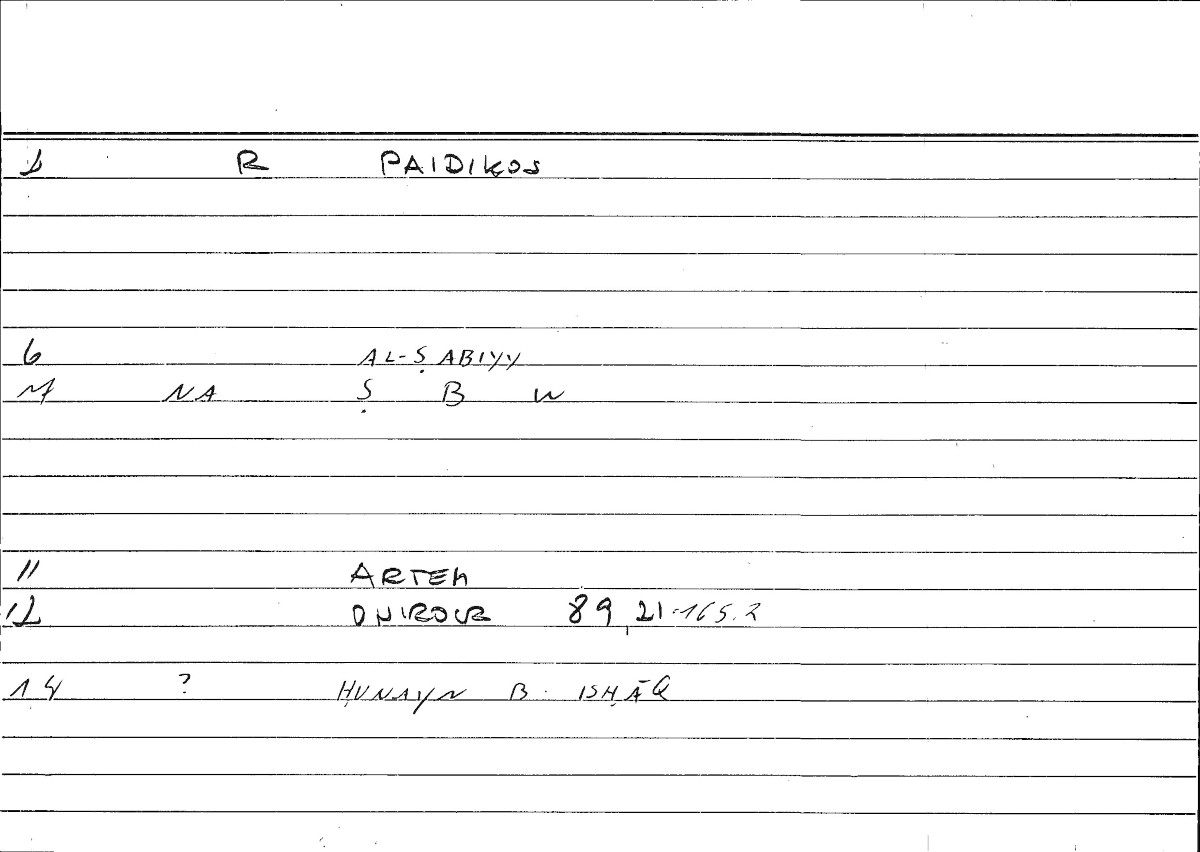 1 R PAIDIKOS
6 AL-ṢABIYY
NA Ṣ B W
11 ARTEM
12 ONIROCR 89,21-165.2
14 ? ḤUNAYN B. ISḤĀQ